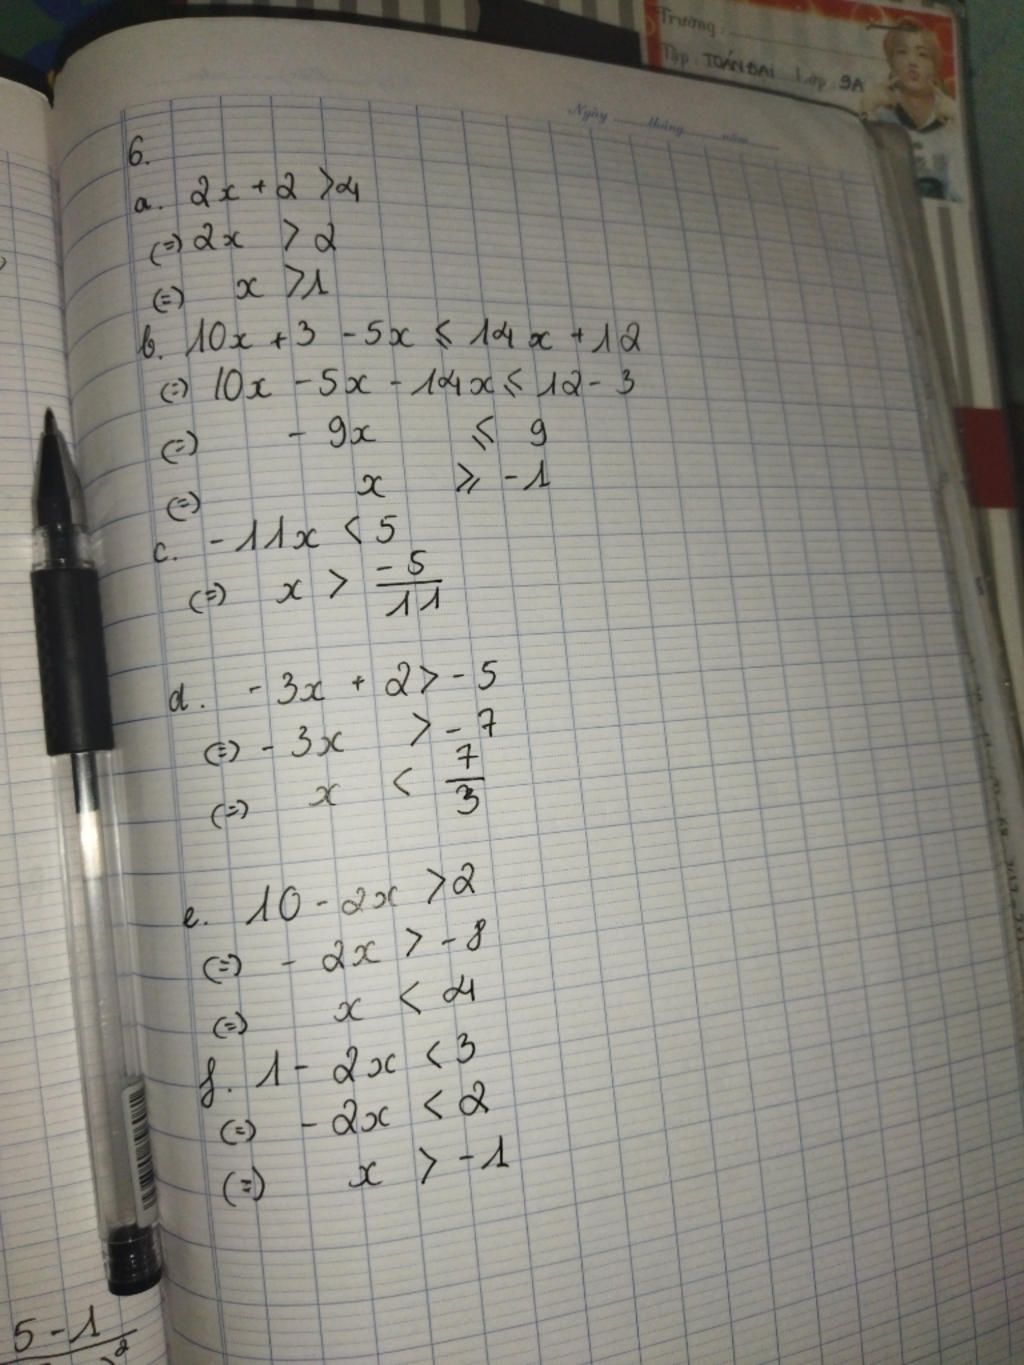 Trường :
Tập : TOÁN ĐẠI Lớp : 9A
Ngày tháng năm
6.
a. 2x + 2 > 4
(=) 2x > 2
(=) x > 1
b. 10x + 3 - 5x ≤ 14x + 12
(=) 10x - 5x - 14x ≤ 12 - 3
(=) - 9x ≤ 9
(=) x ≥ -1
c. -11x < 5
(=) x > -5/11
d. - 3x + 2 > - 5
(=) - 3x > - 7
(=) x < 7/3
e. 10 - 2x > 2
(=) - 2x > - 8
(=) x < 4
f. 1 - 2x < 3
(=) - 2x < 2
(=) x > -1
5 - 1